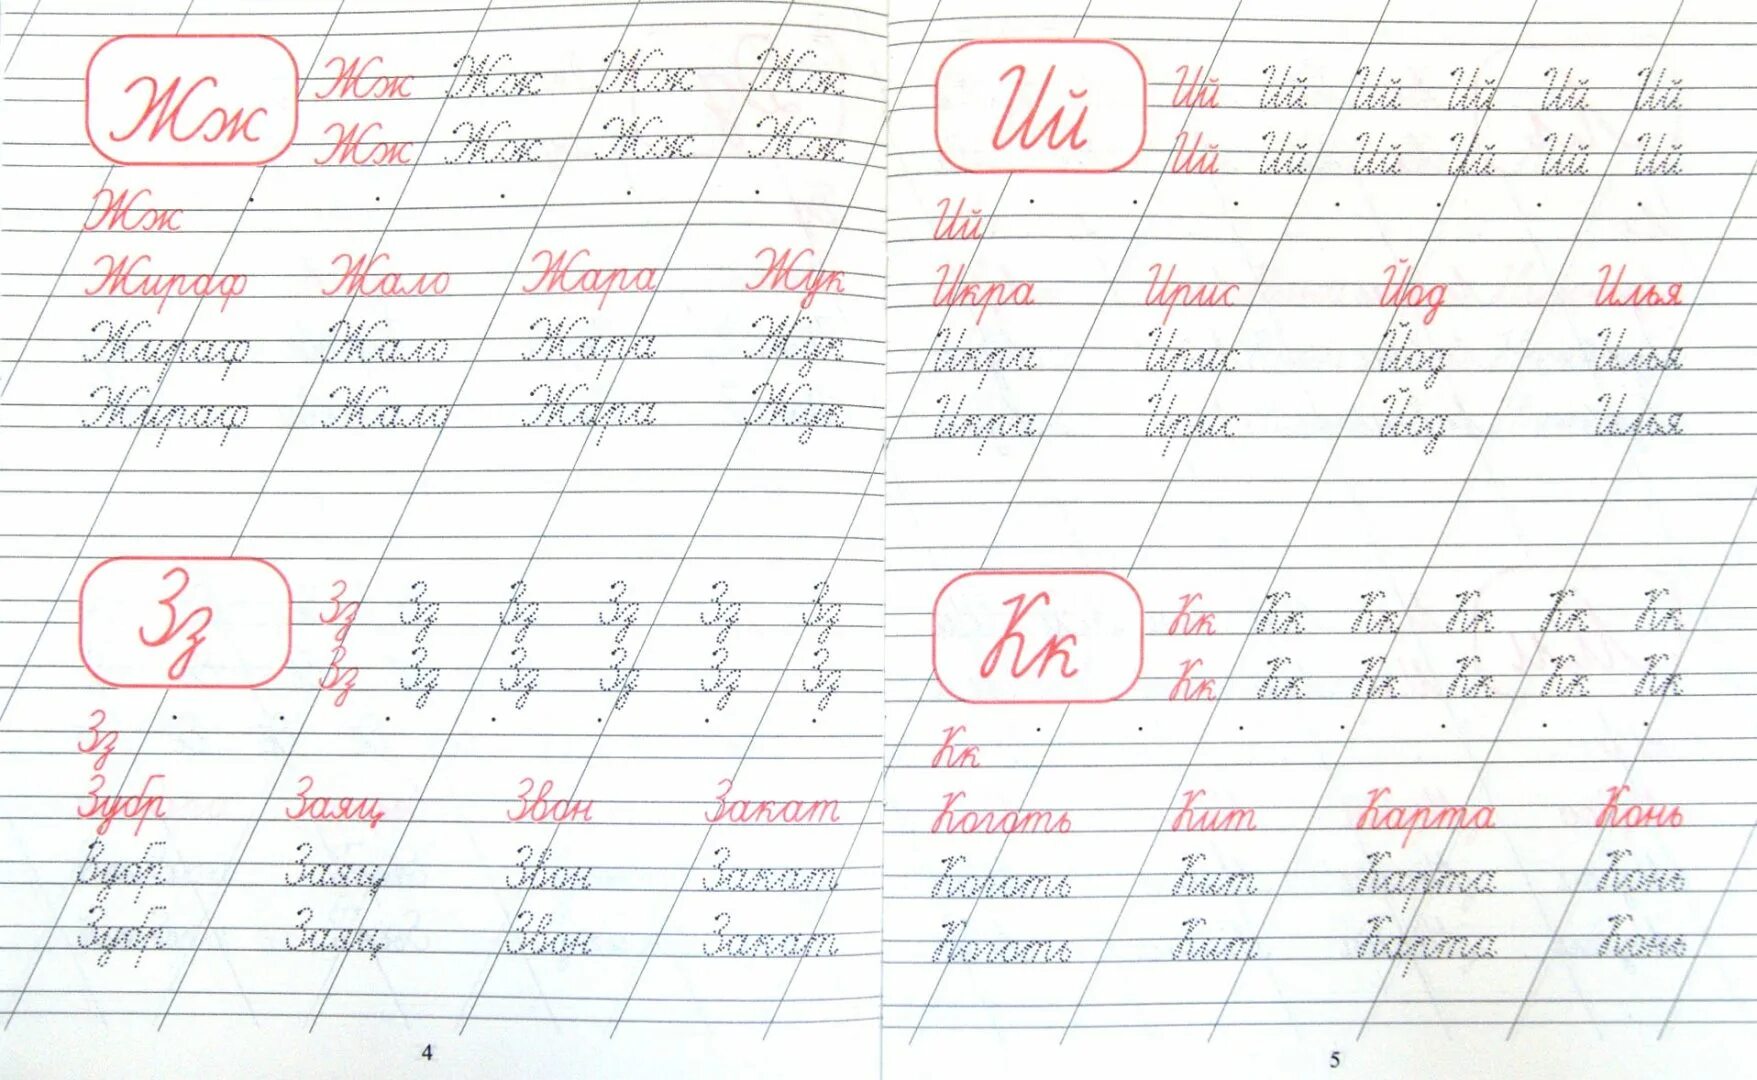 Жж Жж Жж Жж Жж
Жж Жж Жж Жж Жж
Жж
Жираф Жало Жара Жук
Жираф Жало Жара Жук
Жираф Жало Жара Жук
Зз Зз Зз Зз Зз Зз Зз
Зз Зз Зз Зз Зз Зз
Зз
Зубр Заяц Звон Закат
Зубр Заяц Звон Закат
Зубр Заяц Звон Закат
4
Ий Ий Ий Ий Ий Ий Ий
Ий Ий Ий Ий Ий Ий
Ий
Икра Ирис Йод Илья
Икра Ирис Йод Илья
Икра Ирис Йод Илья
Кк Кк Кк Кк Кк Кк Кк
Кк Кк Кк Кк Кк Кк
Кк
Коготь Кит Карта Конь
Коготь Кит Карта Конь
Коготь Кит Карта Конь
5